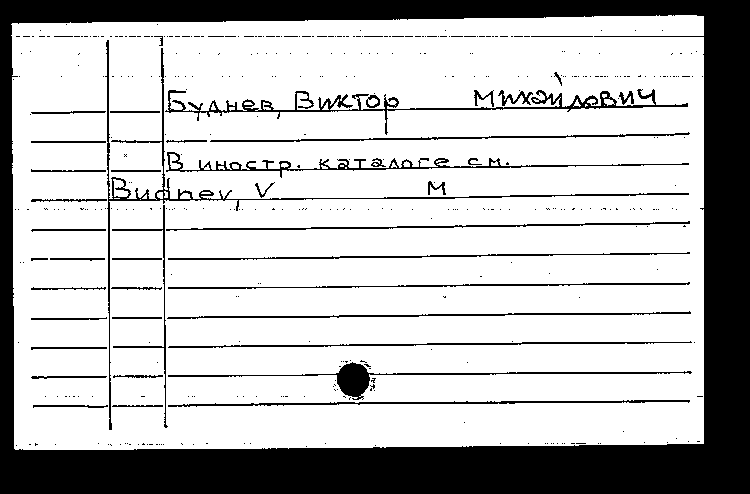 Буднев, Виктор Михайлович
В иностр. каталоге см.
Budnev, V M